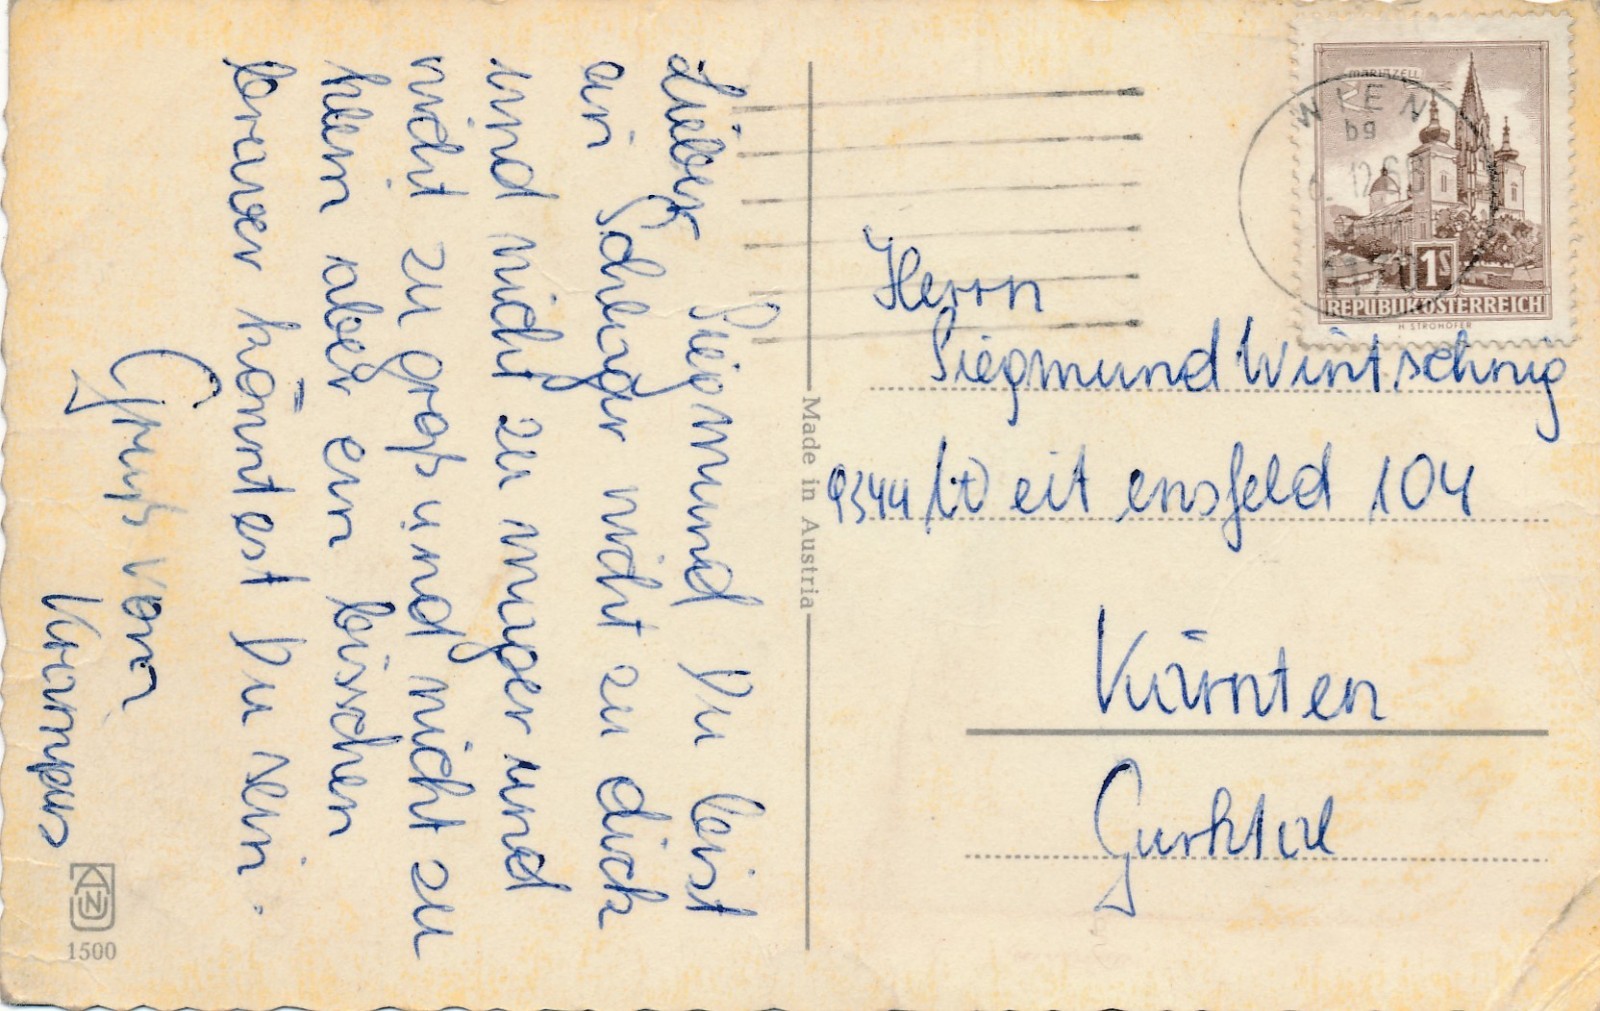 Lieber Siegmund Du bist
ein Schlager nicht zu dick
und nicht zu mager und
nicht zu groß und nicht zu
klein aber ein bisschen
braver könntest Du sein.
Gruß vom
Krampus
ANU
1500
Made in Austria
MARIAZELL
WIEN
1S
REPUBLIK ÖSTERREICH
H. STROHOFER
Herrn
Siegmund Wintschnig
9344 Weitensfeld 104
Kärnten
Gurktal